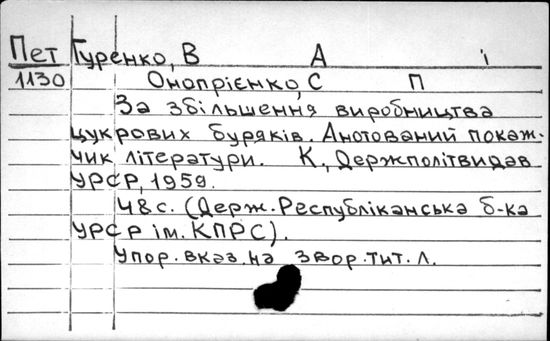 Пет Гуренко, В А і
1130 Онопрієнко, С П
За збільшення виробництва
цукрових буряків. Анотований покаж-
чик літератури. К., Держполітвидав
УРСР, 1959.
48 с. (Держ. Республіканська б-ка
УРСР ім. КПРС).
Упор. вказ. на звор. тит. л.